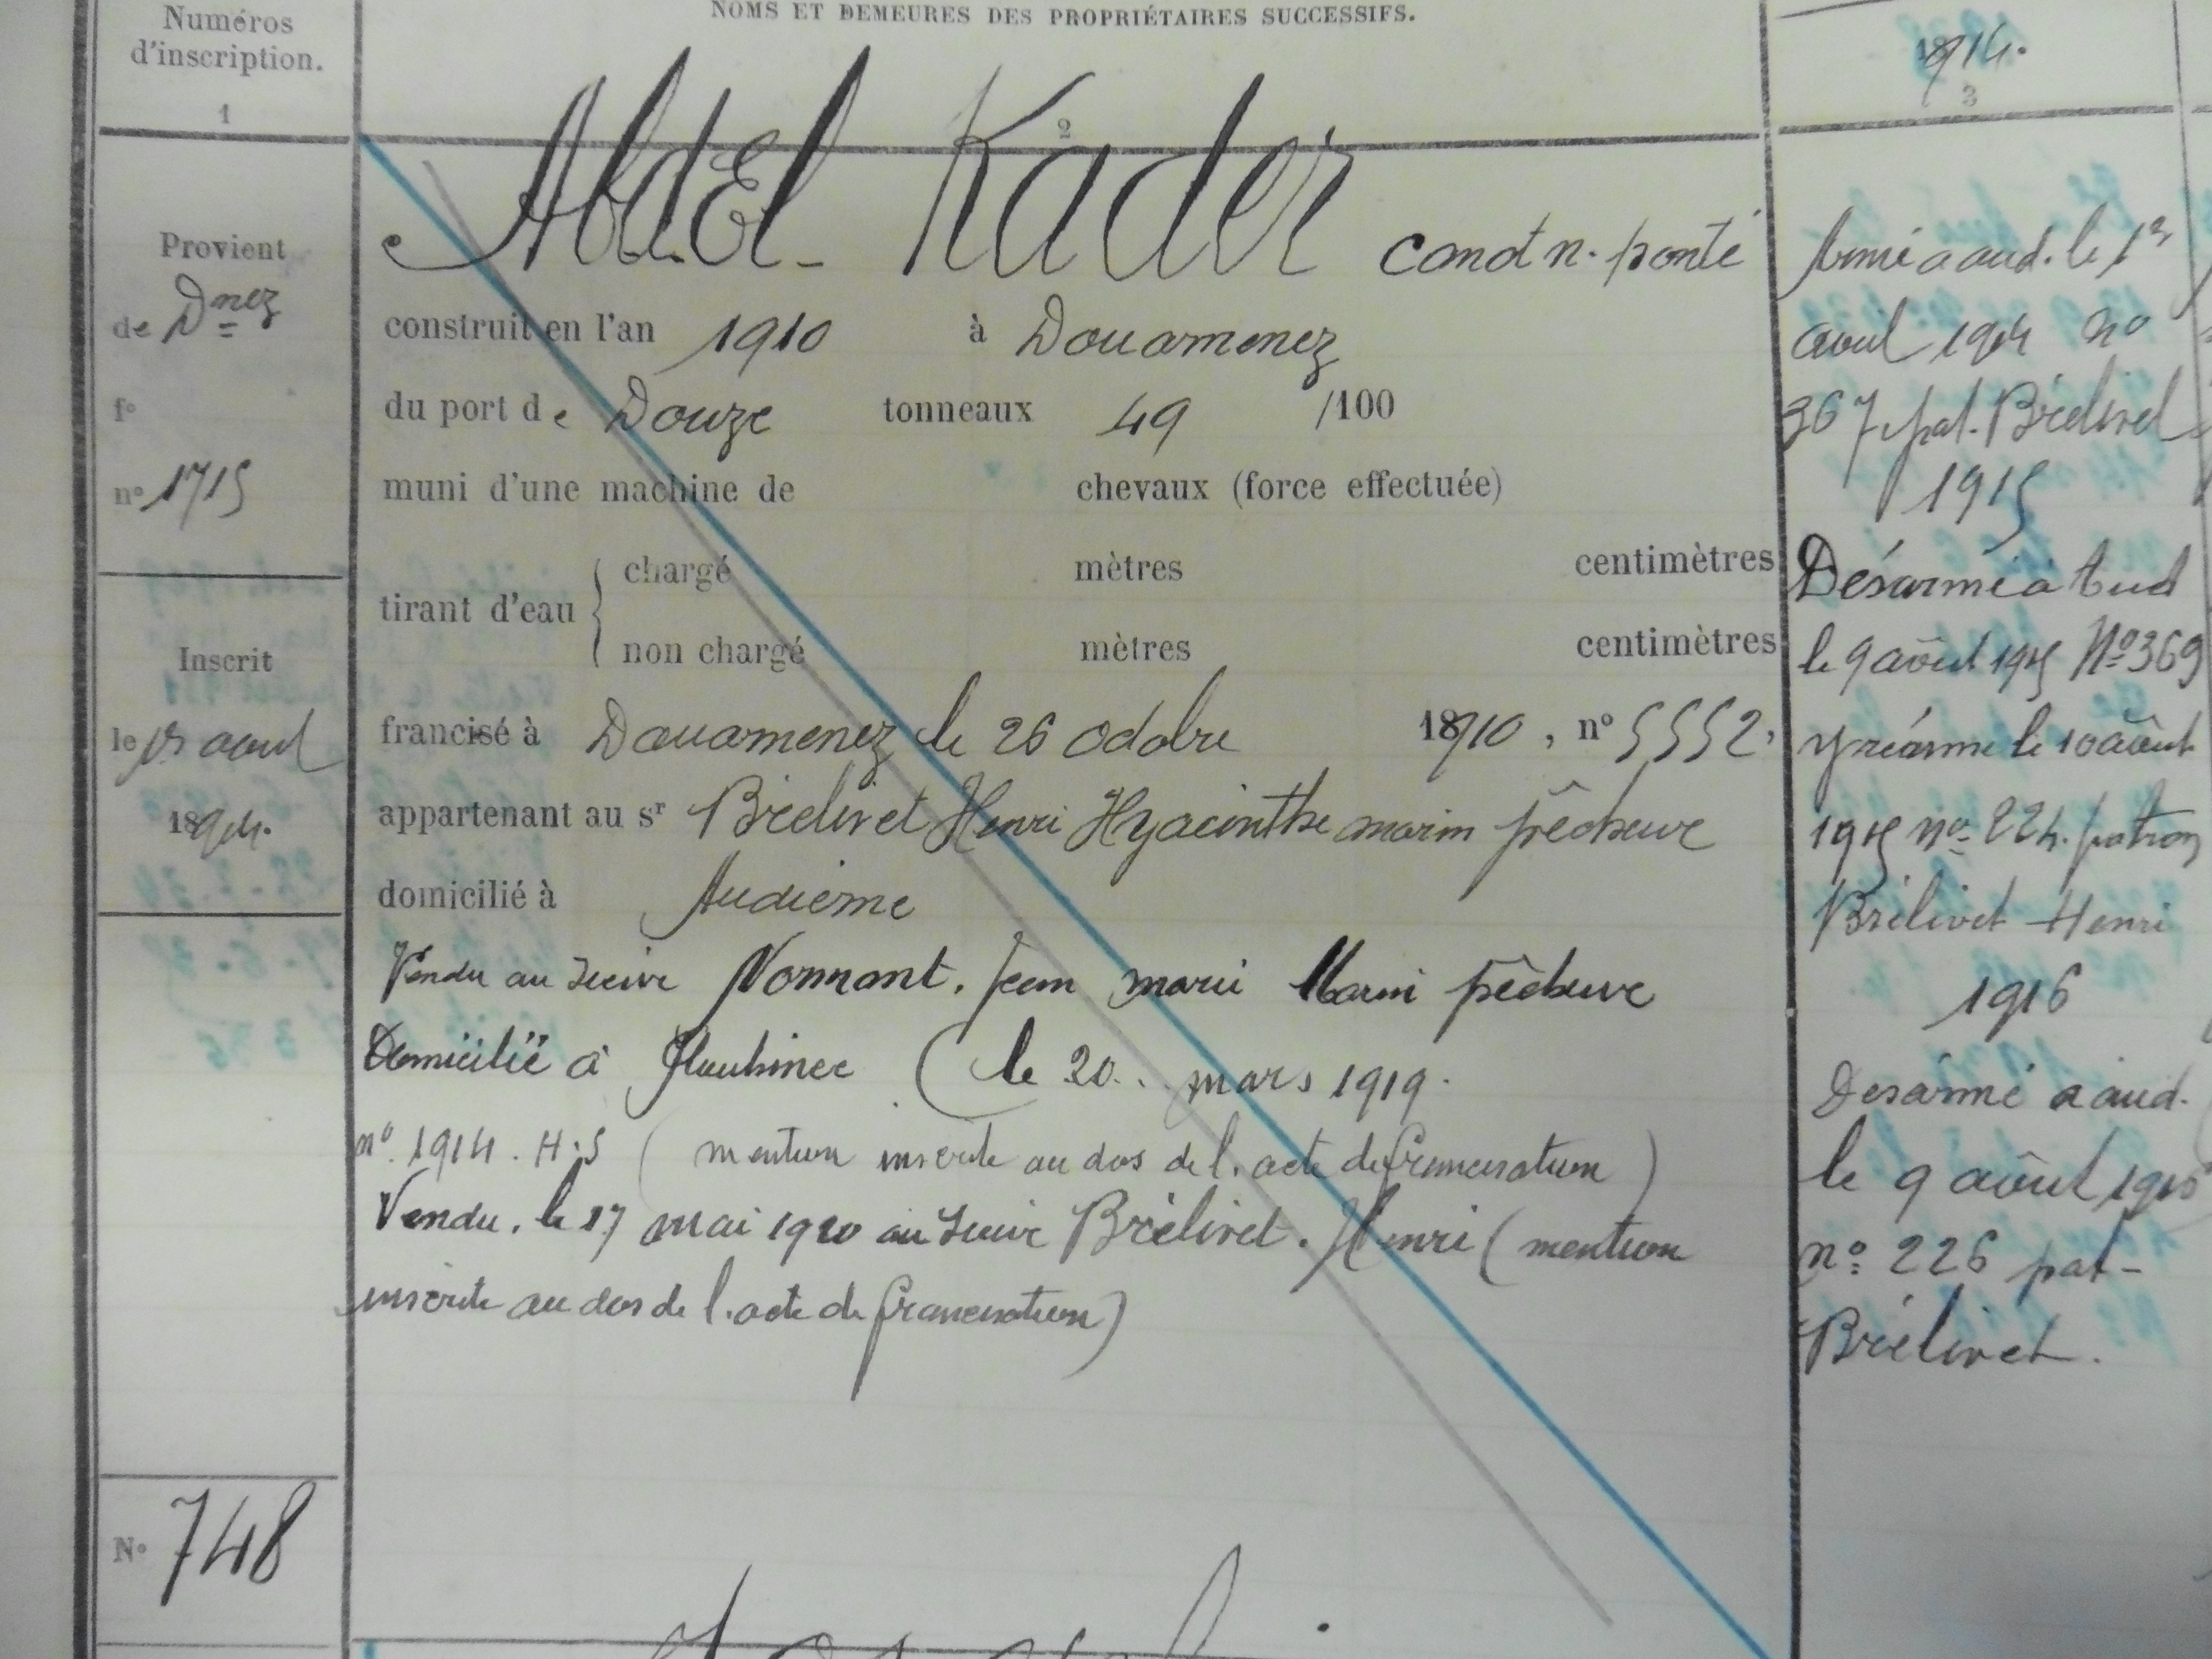 Numéros
d'inscription.
1
Provient
de Dnez
fº
nº 1715
Inscrit
le avril
1914.
Nº 748
NOMS ET DEMEURES DES PROPRIÉTAIRES SUCCESSIFS.
2
Abd-El-Kader canot n. ponté
construit en l'an 1910 à Douarnenez
du port de Douze tonneaux 49 /100
muni d'une machine de chevaux (force effectuée)
tirant d'eau
chargé mètres centimètres
non chargé mètres centimètres
francisé à Douarnenez le 26 octobre 1910, nº 5552,
appartenant au sr Brélivet Henri Hyacinthe marin pêcheur
domicilié à Audierne
Vendu au sieur Normant. Jean marie Marin pêcheur
Domicilié à (le 20. mars 1919.
nº. 1914. H.S (mention inscrite au dos de l. acte de francisation)
Vendu. le 17 mai 1920 au sieur Brélivet. Henri (mention
inscrite au dos de l. acte de francisation)
1914.
3
Armé a aud. le 1er
avril 1914 nº
367 pat. Brélivet
1915
Désarmé à Aud
le 9 août 1915 Nº 369
y réarme le 10 août
1915 nº 224. patron
Brélivet Henri
1916
Desarmé a aud.
le 9 août
nº 226 pat-
Brélivet.